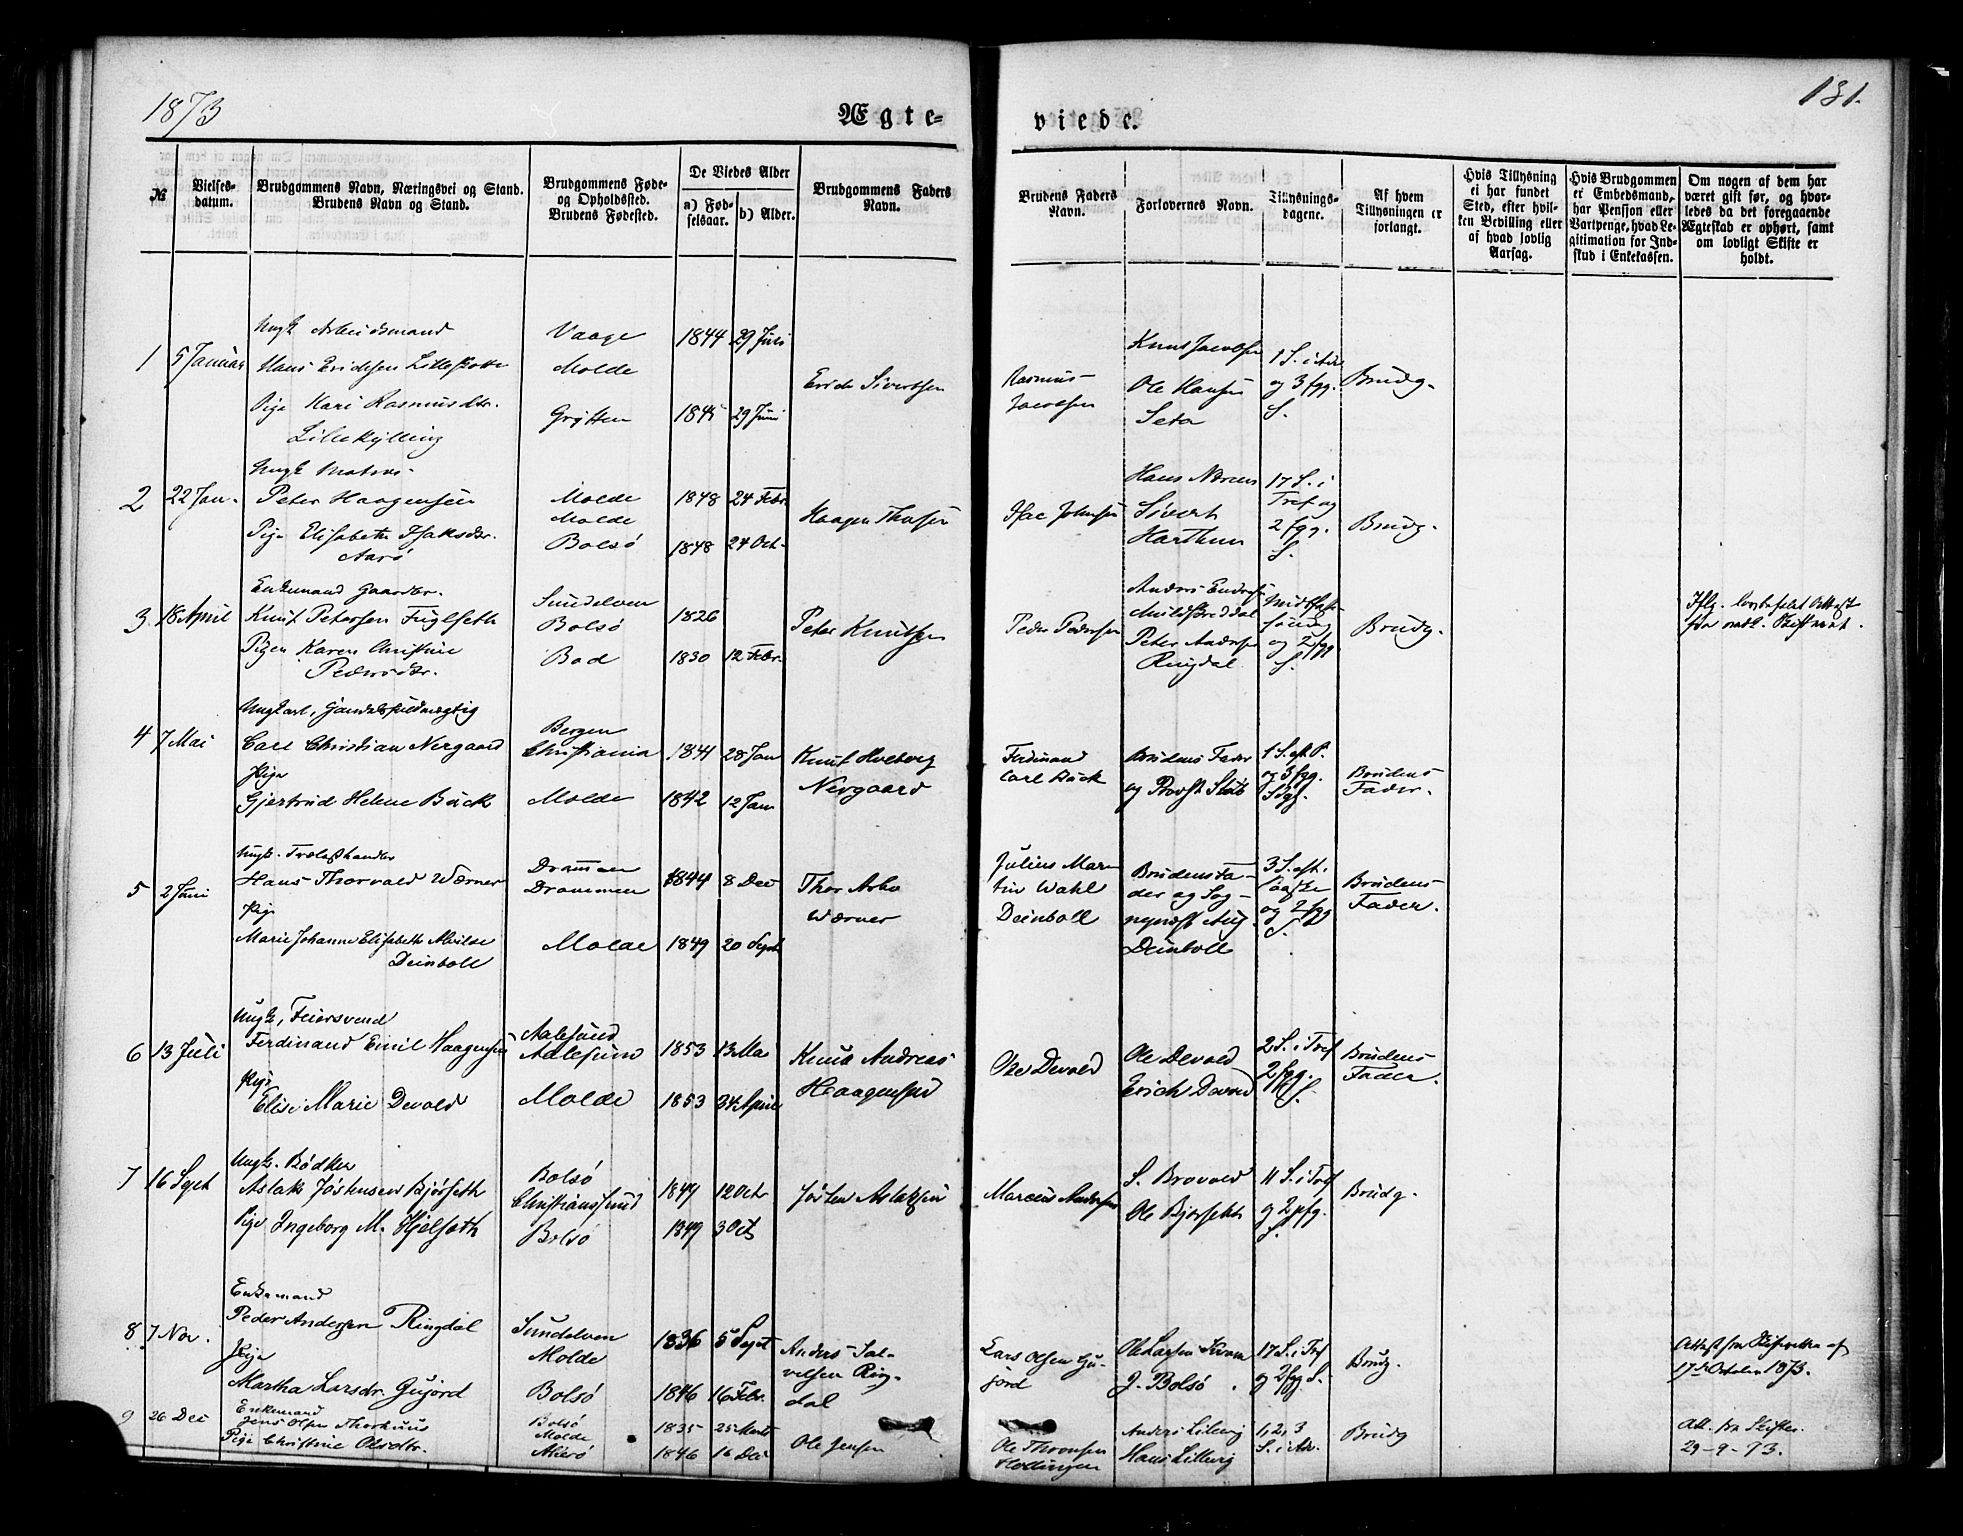 1873
Ægte-
viede.
131.
№
Vielses-
datum.
Brudgommens Navn, Næringsvei og Stand.
Brudens Navn og Stand.
Brudgommens Føde-
og Opholdssted.
Brudens Fødested.
De Viedes Alder
a) Fød-
selsaar.
b) Alder.
Brudgommens Faders
Navn.
Brudens Faders
Navn.
Forlovernes Navn.
Tillysnings-
dagene.
Af hvem
Tillysningen er
forlangt.
Hvis Tillysning
ei har fundet
Sted, efter hvil-
ken Bevilling eller
af hvad lovlig
Aarsag.
Hvis Brudgommen
er Embedsmand,
har Pension eller
Vartpenge, hvad Le-
gitimation for Ind-
skud i Enkekassen.
Om nogen af dem har
været gift før, og hvor-
ledes da det foregaaende
Ægteskab er ophørt, samt
om lovligt Skifte er
holdt.
1
5 Januar
Ungk Arbeidsmand
Hans Erichsen
Pige Kari Rasmusdtr.
Lillekylling
Vaage
Molde
Grytten
1844
1845
29 Juli
29 Juni
Erich Sivertsen
Rasmus
Jacobsen
Knut Jacobsen
Ole Hansen
Seta
1 S. i
og 3 fgg.
S.
Brudg.
2
22 Jan.
Ungk Matros
Peter Haagensen
Pige Elisabeth Isaksdtr.
Aarö
Molde
Molde
Bolsö
1848
1848
24 Febr.
24 Oct.
Haagen
Isac Johnsen
Hans
Sivert
Harthun
17 S. i
Tref og
2 fgg.
S.
Brudg.
3
18 April
Enkemand Gaardbr.
Knut Petersen Fuglseth
Pigen Karen Christine
Pedersdtr.
Sundelven
Bolsö
Bod
1826
1830
12 Febr.
Peter Knutsen
Peder Pedersen
Anders
Peter Andersen
Ringdal
og 2 fgg
S.
Brudg.
4
7 Mai
Ungkarl, Handelsfuldmægtig
Carl Christian Nergaard
Pige
Gjertrud Helene Bück
Bergen
Christiania
Molde
1841
1842
28 Jan
12 Jan
Knut Holberg
Nergaard
Ferdinand
Carl Bück
Brudens Fader
og Provst
1 S. eft. P.
og 3 fgg.
Brudens
Fader.
5
2 Juni
Ungk. Trælasthandler
Hans Thorvald Wærner
Pige
Marie Johanne Elisabeth Alvilde
Deinboll
Drammen
Drammen
Molde
1844
1849
8 Dec
20 Sept
Thor Arbo
Wærner
Julius Mar-
tin Wahl
Deinboll
Brudens Fa-
der og Sog-
nepræst Aug.
Deinboll
3 S. eft.
Paaske
og 2 fgg
S.
Brudens
Fader.
6
13 Juli
Ungk, Feiersvend
Ferdinand Emil Haagensen
Pige
Elise Marie Devold
Aalesund
Aalesund
Molde
1853
1853
13 Mai
April
Knud Andreas
Haagensen
Ole Devold
Ole Devold
Erich Devold
2 S. i Tref
2 fgg.
S.
Brudens
Fader.
7
16 Sept
Ungk. Bödker
Aslak Jöstensen Björseth
Pige Ingeborg M. Hjelseth
Bolsö
Christianssund
Bolsö
1849
1849
12 Octr
3 Oct
Jösten Aslaksen
Marcus Andersen
S. Brovold
Ole Björseth
11 S. i Tref
og 2 fgg.
S.
Brudg.
8
7 Nov.
Enkemand
Peder Andersen Ringdal
Pige
Martha Larsdr. Gujord
Sundelven
Molde
Bolsö
1836
1846
5 Sept
16 Febr.
Anders Sal-
velsen Ring-
dal
Lars Olsen Gu-
jord
Ole Larsen Kvam
J. Bolsö.
17 S. i Tref
og 2 fgg. S.
Brudg.
Attest fra Skifteretten af
17de October 1873.
9
26 Dec
Enkemand
Jens Olsen Thorhuus
Pige Christine Olsdtr.
Bolsö
Molde
Akerö
1835
1846
25 Marts
16 Dec
Ole Jensen
Ole Thronsen
Hollingen
Anders Lillevig
Hans Lillevig
1, 2, 3
S. i Adv.
Brudg
Att. fra Skifter.
29-9-73.